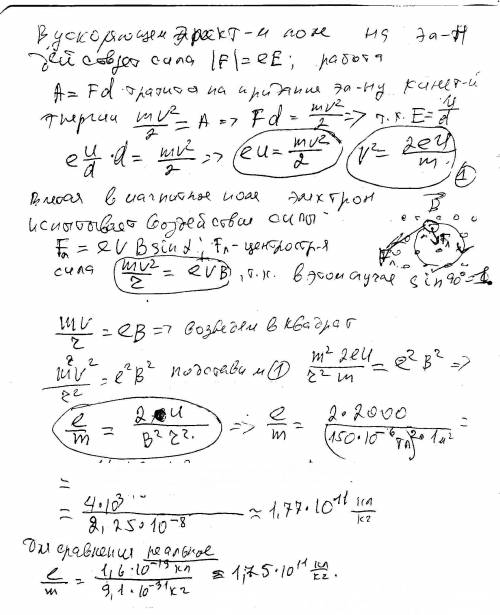 В ускоряющем эл-м поле на эл-н
действует сила |F| = eE; работа
A = Fd тратится на придание эл-ну кинет-й
энергии mv²/2 = A => Fd = mv²/2 => т.к. E = U/d
e U/d · d = mv²/2 => eU = mv²/2 V² = 2eU/m ①
Влетая в магнитное поле электрон
испытывает воздействие силы
Fл = eVB sin α; Fл - центростр-я
сила mv²/r = eVB, т.к. в этом случае sin 90° = 1.
B
Fл
mv/r = eB => возведем в квадрат
m²v²/r² = e²B² подставим ① m² 2eU/r² m = e²B² =>
e/m = 2U/B² r² => e/m = 2·2000/(150·10⁻⁶ Тл)² · 1м² =
=
= 4·10³/2,25·10⁻⁸ ≈ 1,77·10¹¹ Кл/кг
Для сравнения реальное
e/m = 1,6·10⁻¹⁹ Кл/9,1·10⁻³¹ кг ≈ 1,75·10¹¹ Кл/кг.